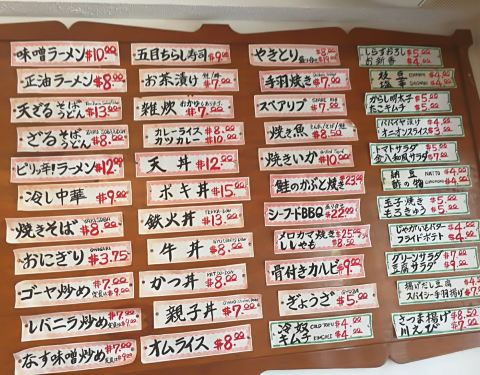 味噌ラーメン $10.00
正油ラーメン $8.00
天ざるそばうどん $13.00
ざるそばうどん $8.00
ピリ辛ラーメン $12.00
冷し中華 $9.00
焼きそば $8.00
おにぎり $3.75
ゴーヤ炒め $7.00
$9.00
レバニラ炒め $7.00
$9.00
なす味噌炒め $7.00
$9.00
五目ちらし寿司 $9.00
お茶漬け $7.00
雑炊 $7.00
カレーライス $8.00
カツカレー $10.00
天丼 $12.00
ポキ丼 $15.00
鉄火丼 $13.00
牛丼 $8.00
かつ丼 $8.00
親子丼 $7.00
オムライス $8.00
やきとり $8.00
手羽焼き $7.00
スペアリブ $7.00
焼き魚 $8.50
焼きいか $10.00
鮭のかぶと焼き $23.00
シーフードBBQ $22.00
メロカマ焼き $25.00
ししゃも $8.50
骨付きカルビ $9.00
ぎょうざ $5.00
冷奴 COLD TOFU $4.00
キムチ KIMCHEE $4.00
しらすおろし $5.00
お新香 $4.00
枝豆 $4.00
塩辛 $4.00
からし明太子 $5.00
たこキムチ $5.00
パパイヤ漬け $4.00
オニオンスライス $3.00
トマトサラダ $5.00
金八和風サラダ $7.00
納豆 NATTO $4.00
酢の物 $4.00
玉子焼き $5.00
もろきゅう $5.00
じゃがいもバター $4.00
フライドポテト $4.00
グリーンサラダ $7.00
豆腐サラダ $9.00
揚げだし豆腐
スパイシー手羽揚げ $7.00
さつま揚げ $8.50
川えび $7.00